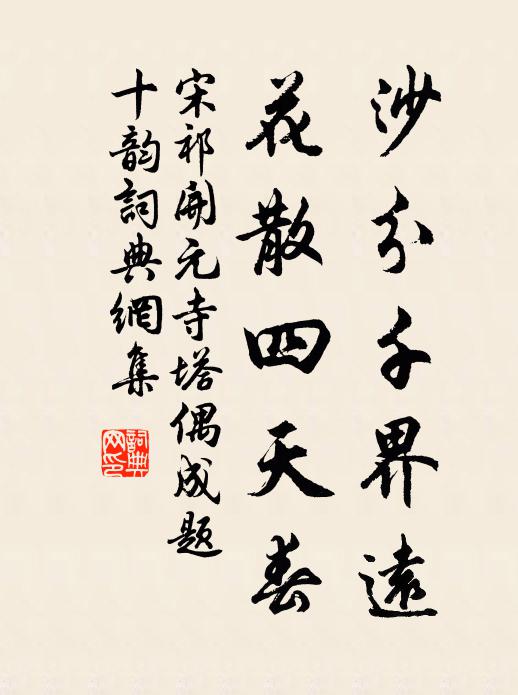 沙分千界遠
花散四天春
宋祁開元寺塔偶成題
十韵詞典網集
詞典
网印